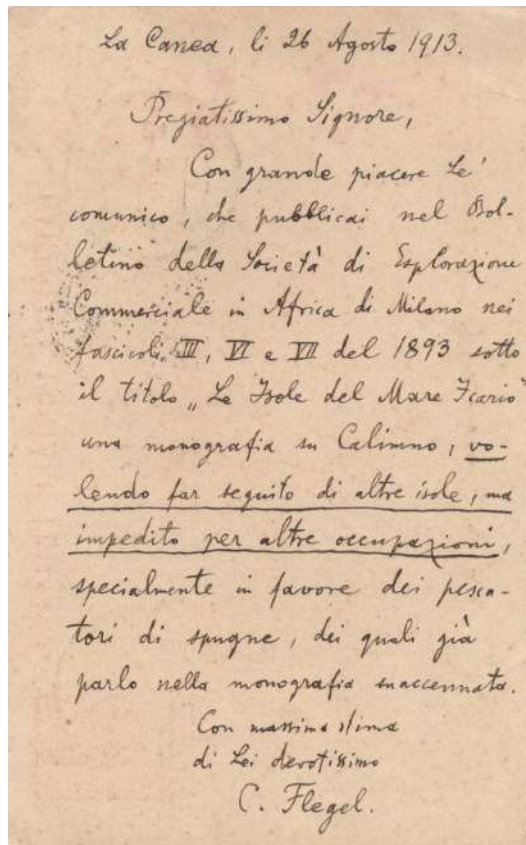 La Canea, li 26 Agosto 1913.
Pregiatissimo Signore,
Con grande piacere Le
comunico, che pubblicai nel Bol-
letino della Società di Esplorazione
Commerciale in Africa di Milano nei
fascicoli III, VI e VII del 1893 sotto
il titolo „Le Isole del Mare Icario"
una monografia su Calimno, vo-
lendo far seguito di altre isole, ma
impedito per altre occupazioni,
specialmente in favore dei pesca-
tori di spugne, dei quali già
parlo nella monografia suaccennata.
Con massima stima
di Lei devotissimo
C. Flegel.